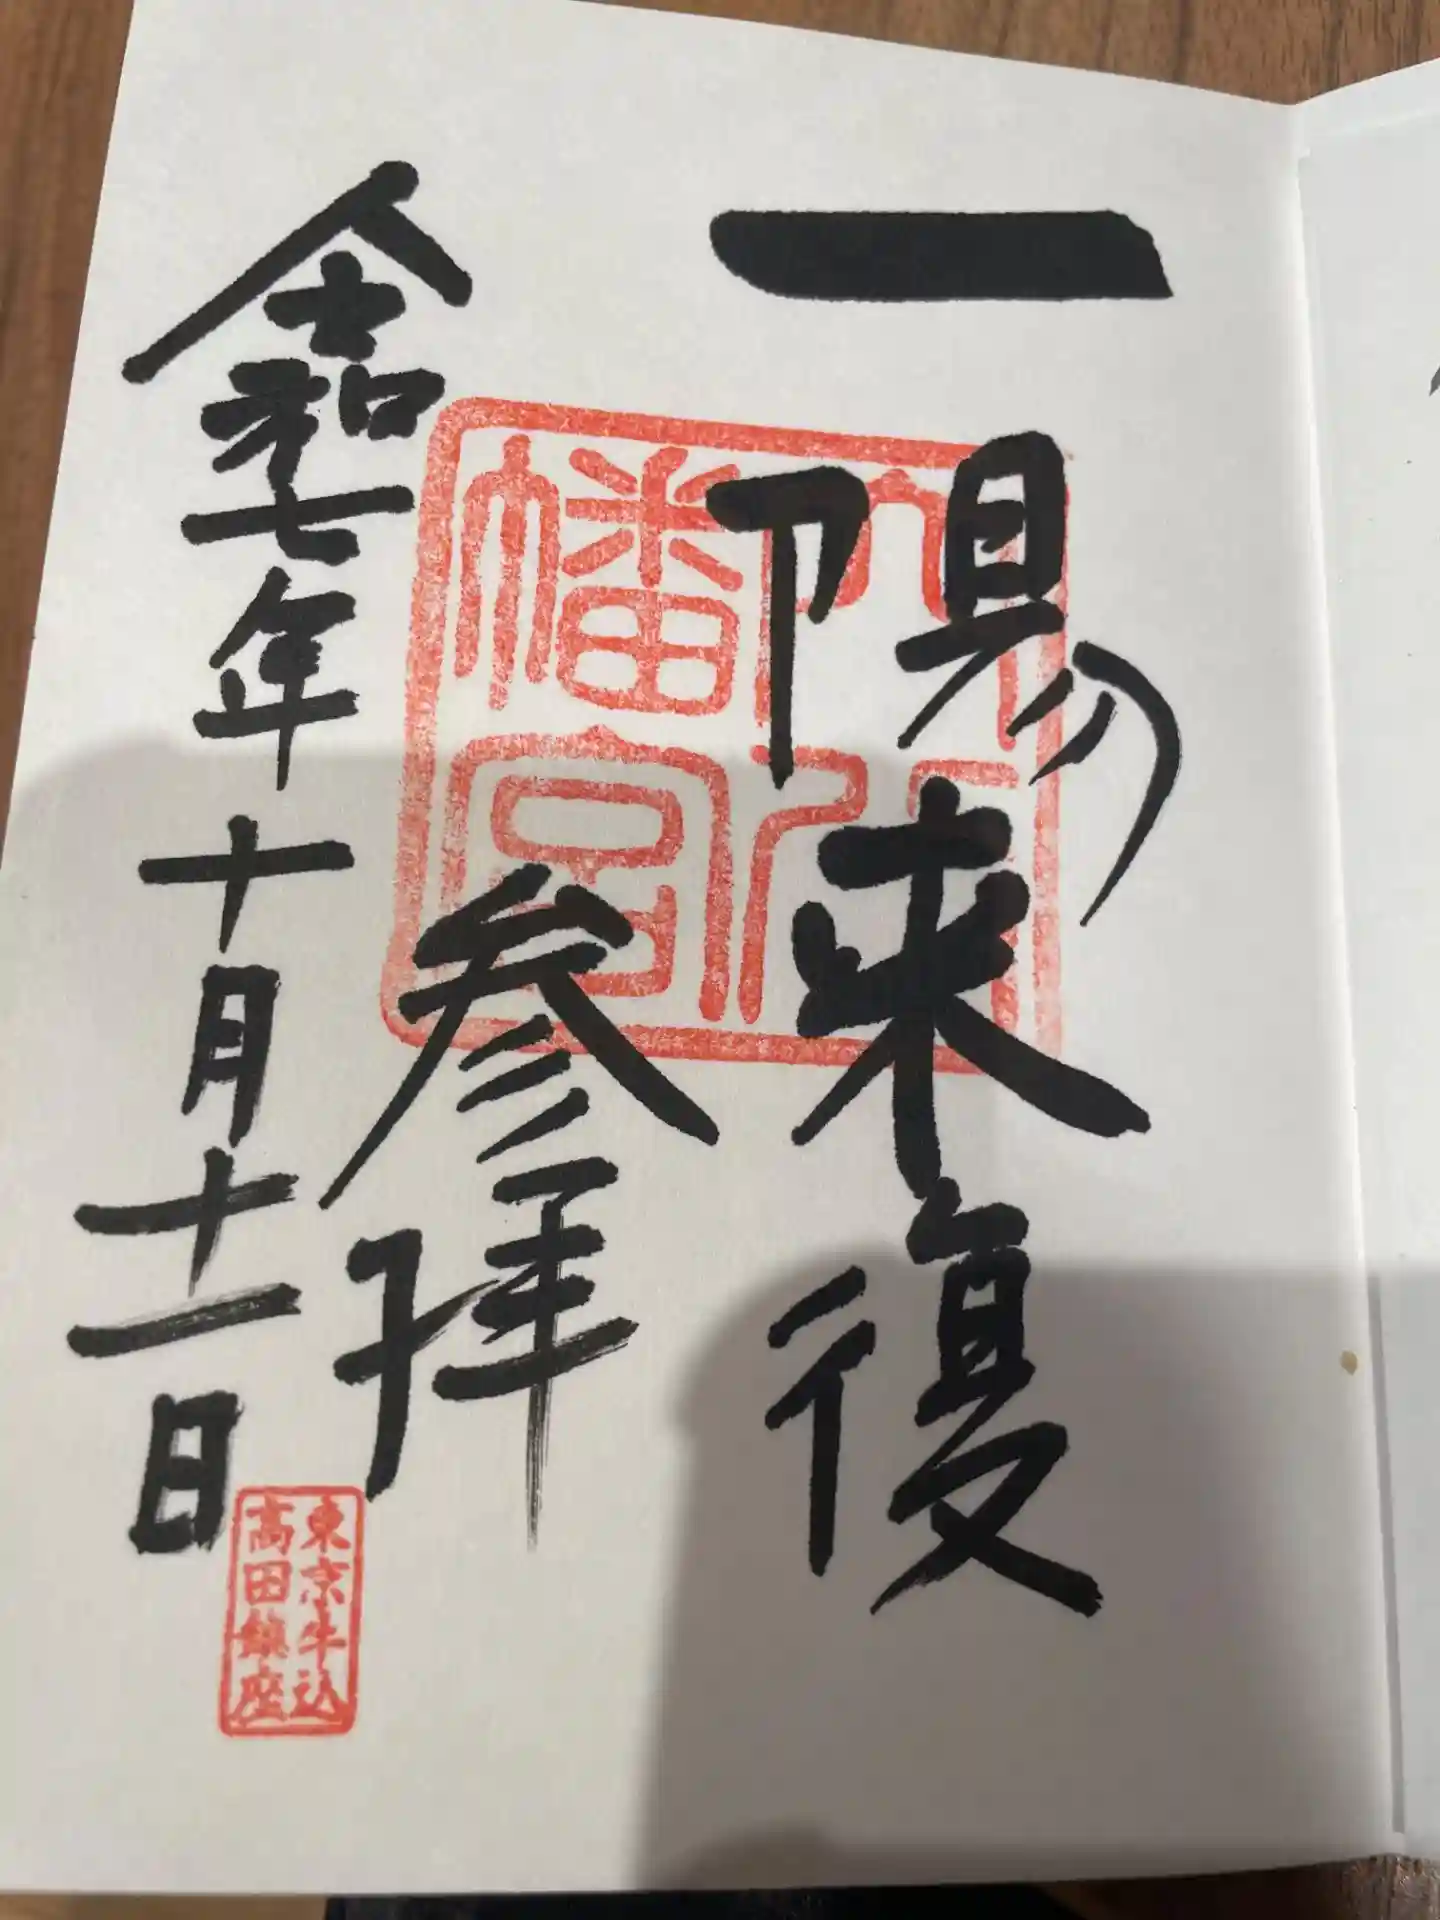 一陽来復
穴八
幡宮
参拝
令和七年十月十一日
東京牛込
高田鎮座